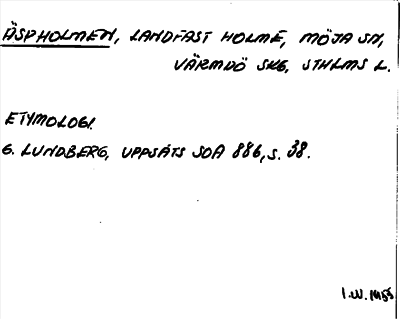 ÄSPHOLMEN, LANDFAST HOLME, MÖJA SN,
VÄRMDÖ SKG, STHLMS L.
ETYMOLOGI.
G. LUNDBERG, UPPSATS SOA 886, S. 38.
I.W. 1955